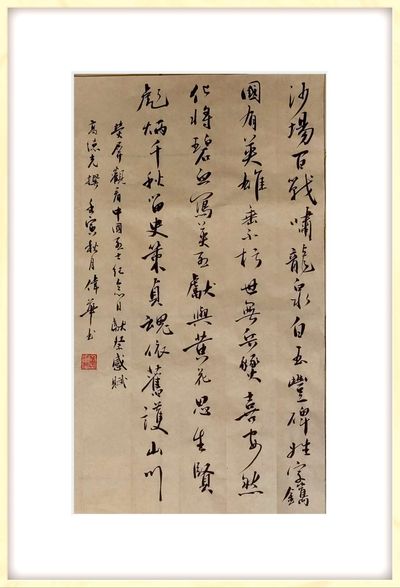 沙場百戰嘯龍泉白玉豐碑姓字鐫
國有英雄垂不朽世無兵燹喜安然
化將碧血寫英烈獻與黄花思先賢
彪炳千秋留史策貞魂依舊護山川
熒屏觀看中國烈士紀念日献感賦
高德光撰 壬寅秋月偉華书